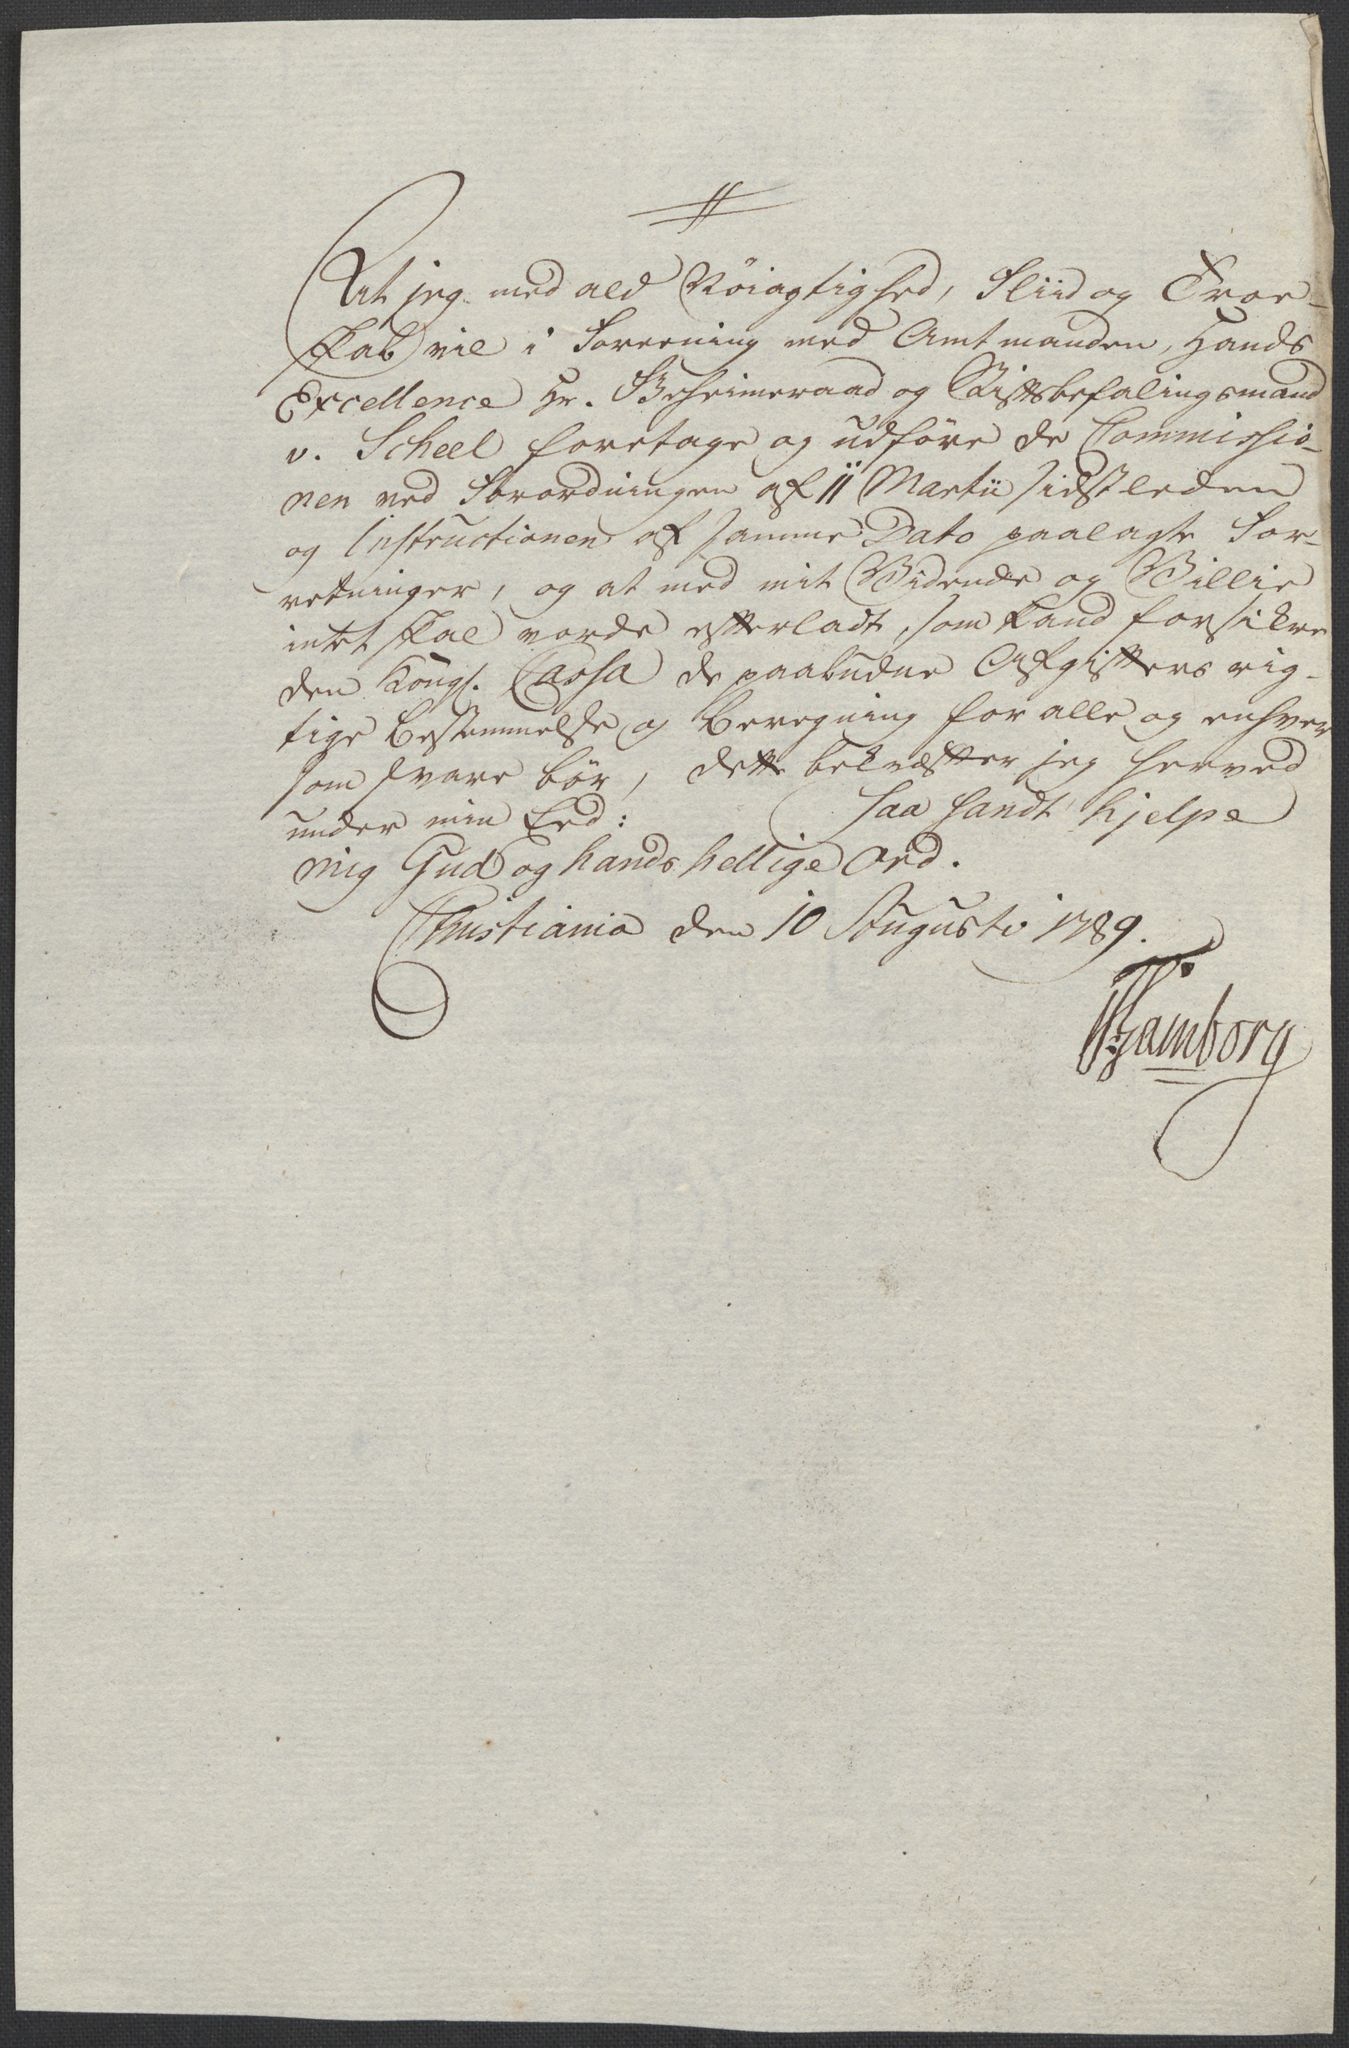 At jeg med ald Nöiagtighed, Fliid og Troe-
skab vil i Foreening med Amtmanden, Hands
Excellence Hr. Geheimeraad og Stiftsbefalingsmand
v. Scheel foretage og udföre de Commissio-
nen ved Forordningen af 11 Martii sidstleden
og Instructionen af samme Dato paalagte For-
retninger, og at med mit Vidende og Villie
intet skal vorde efterladt, som kand forsikre
den Kongl. Cassa de paabudne Afgifters rig-
tige Bestemmelse og Beregning for alle og enhver
som svare bör, dette bekræfter jeg herved
under min Eed: saa sandt hjelpe
mig Gud og hands hellige Ord.
Christiania den 10 Augusti 1789.
Hamborg